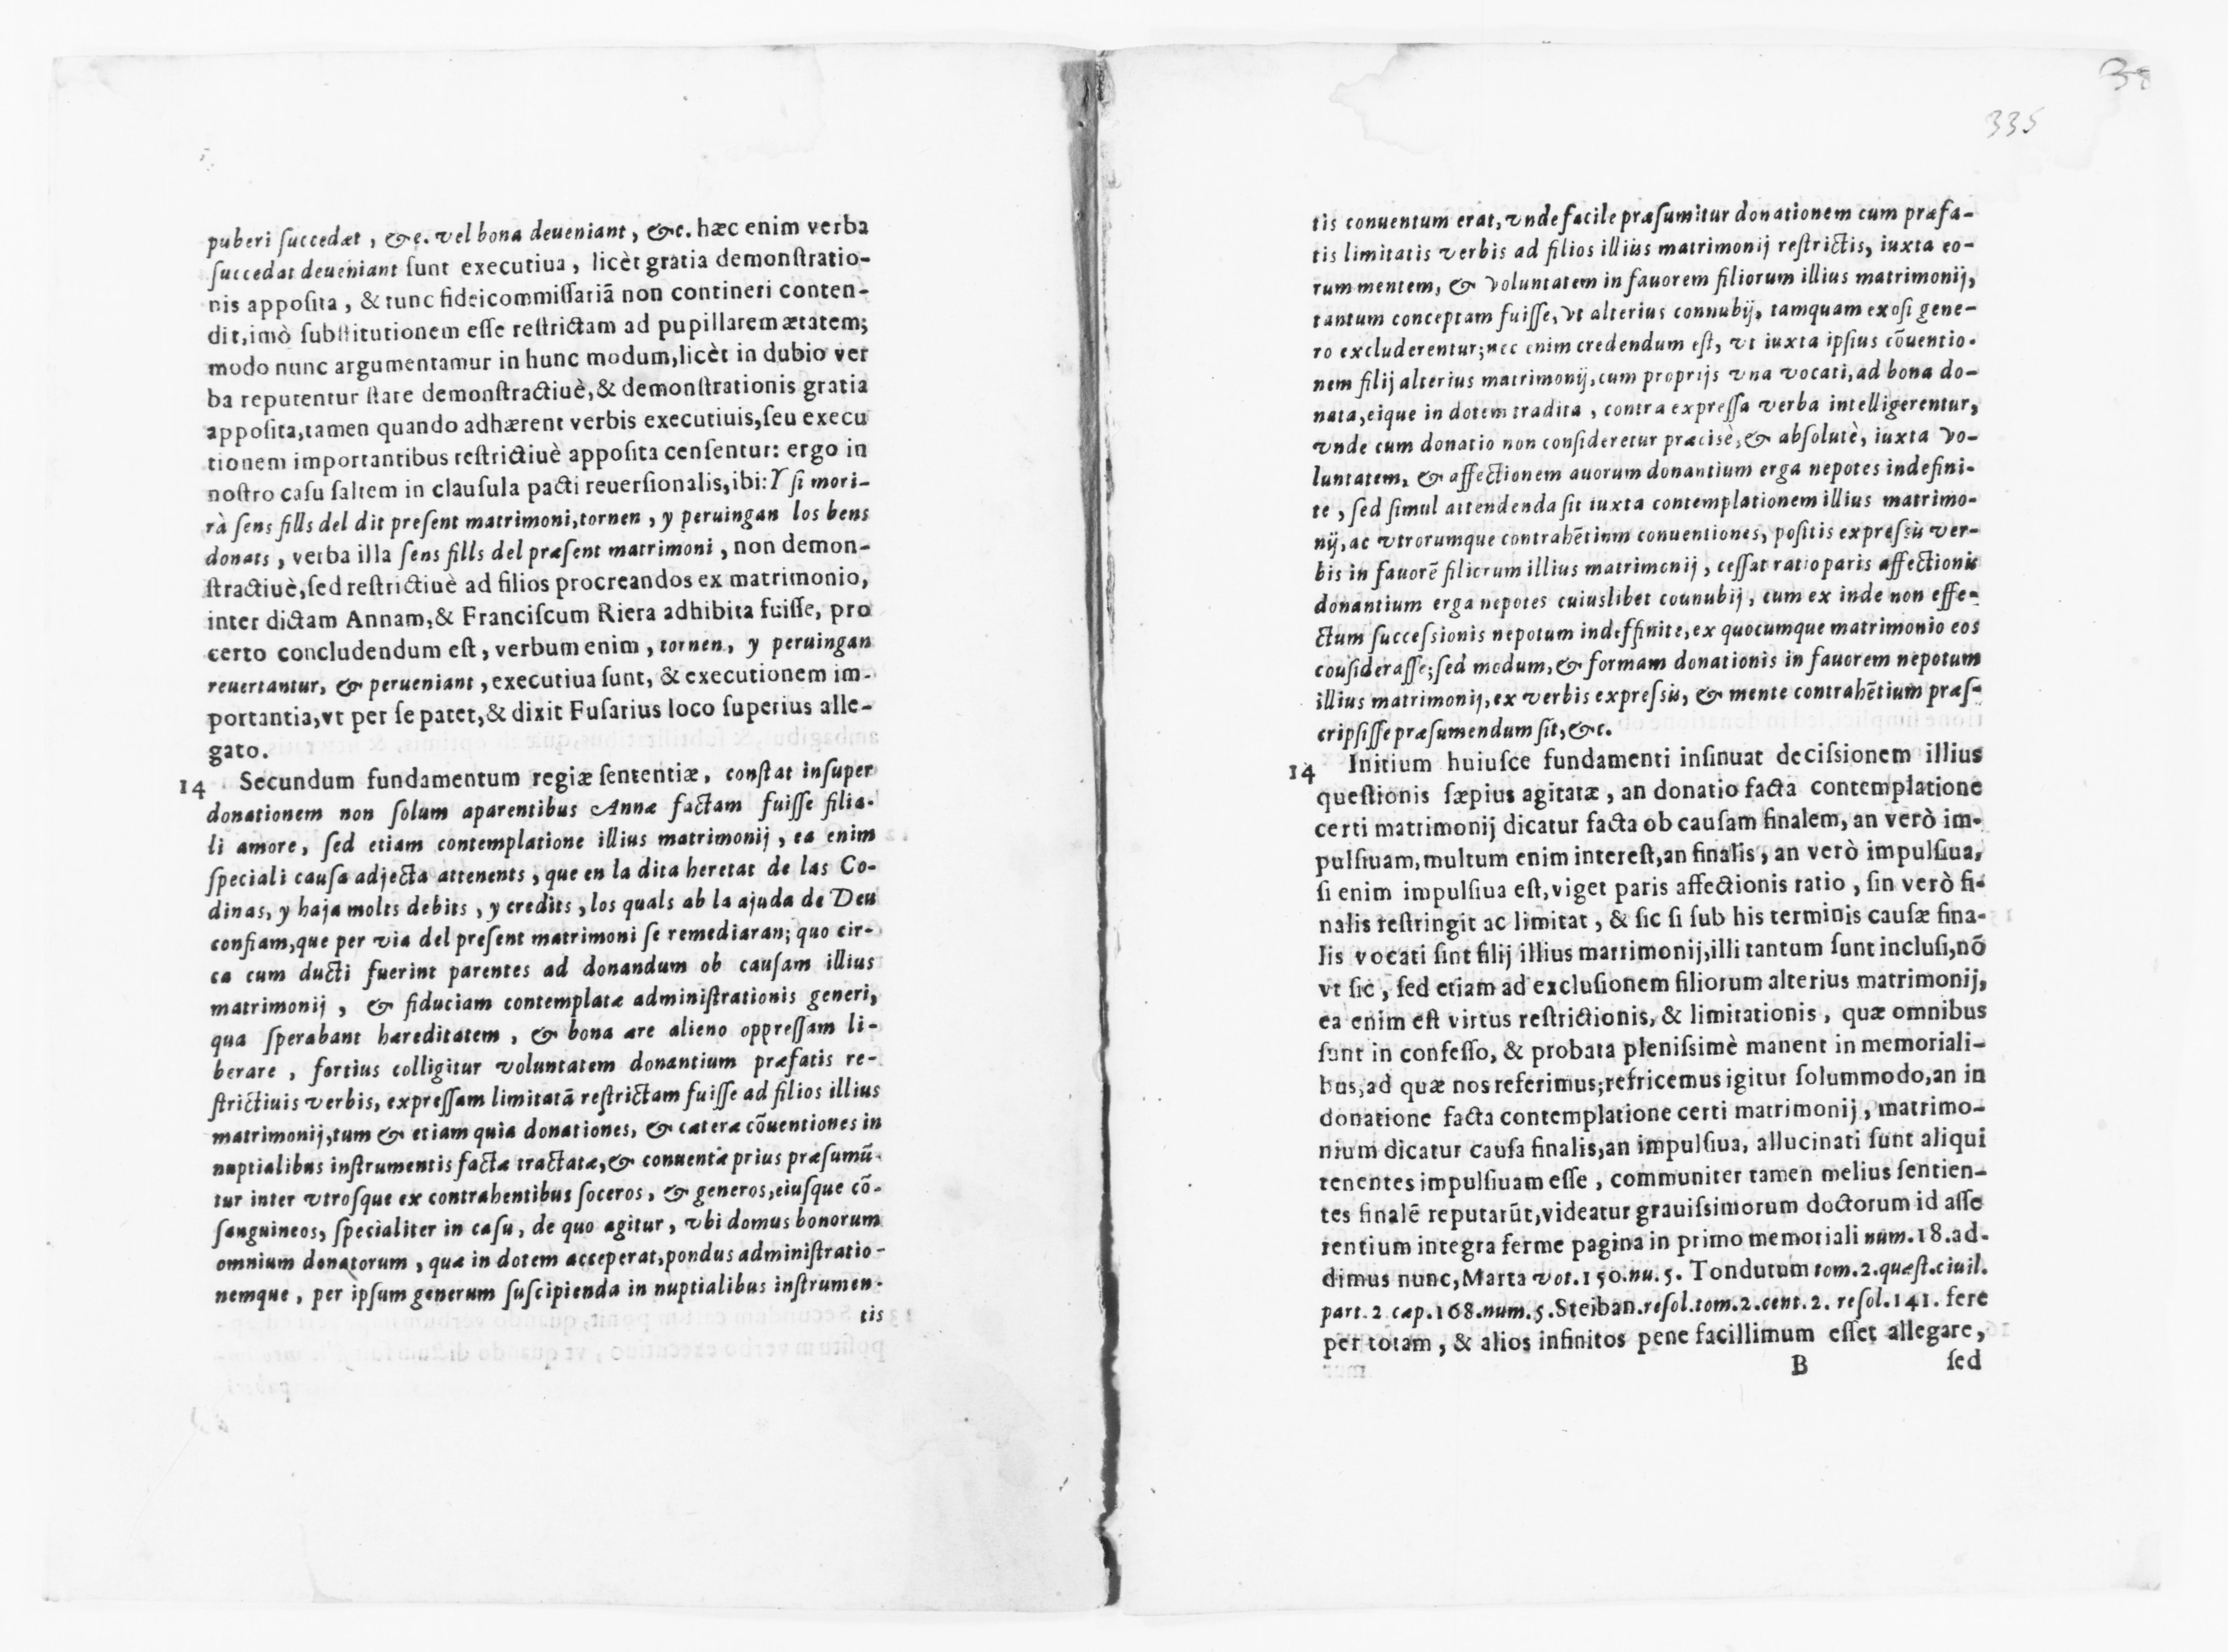 puberi ſuccedat, &c. vel bona deueniant, &c. hæc enim verba
ſuccedat deueniant ſunt executiua, licèt gratia demonſtratio-
nis appoſita, & tunc fideicommiſſariā non contineri conten-
dit, imò ſubſtitutionem eſſe reſtrictam ad pupillarem ætatem;
modo nunc argumentamur in hunc modum, licèt in dubio ver
ba reputentur ſtare demonſtractiuè, & demonſtrationis gratia
appoſita, tamen quando adhærent verbis executiuis, ſeu execu
tionem importantibus reſtrictiuè appoſita cenſentur: ergo in
noſtro caſu ſaltem in clauſula pacti reuerſionalis, ibi: Y ſi mori-
rà ſens fills del dit preſent matrimoni, tornen, y peruingan los bens
donats, verba illa ſens fills del præſent matrimoni, non demon-
ſtractiuè, ſed reſtrictiuè ad filios procreandos ex matrimonio,
inter dictam Annam, & Franciſcum Riera adhibita fuiſſe, pro
certo concludendum eſt, verbum enim, tornen, y peruingan
reuertantur, & perueniant, executiua ſunt, & executionem im-
portantia, vt per ſe patet, & dixit Fuſarius loco ſuperius alle-
gato.
14 Secundum fundamentum regiæ ſententiæ, conſtat inſuper
donationem non ſolum aparentibus Annæ factam fuiſſe filia-
li amore, ſed etiam contemplatione illius matrimonij, ea enim
ſpeciali cauſa adjecta attenents, que en la dita heretat de las Co-
dinas, y haja molts debits, y credits, los quals ab la ajuda de Deu
confiam, que per via del preſent matrimoni ſe remediaran; quo cir-
ca cum ducti fuerint parentes ad donandum ob cauſam illius
matrimonij, & fiduciam contemplatæ adminiſtrationis generi,
qua ſperabant hæreditatem, & bona ære alieno oppreſſam li-
berare, fortius colligitur voluntatem donantium præfatis re-
ſtrictiuis verbis, expreſſam limitatā reſtrictam fuiſſe ad filios illius
matrimonij, tum & etiam quia donationes, & cæteræ cōuentiones in
nuptialibus inſtrumentis factæ tractatæ, & conuentæ prius præſumū-
tur inter vtroſque ex contrahentibus ſoceros, & generos, eiuſque cō-
ſanguineos, ſpecialiter in caſu, de quo agitur, vbi domus bonorum
omnium donatorum, quæ in dotem acceperat, pondus adminiſtratio-
nemque, per ipſum generum ſuſcipienda in nuptialibus inſtrumen-
tis
335
tis conuentum erat, vnde facile præſumitur donationem cum præfa-
tis limitatis verbis ad filios illius matrimonij reſtrictis, iuxta eo-
rum mentem, & voluntatem in fauorem filiorum illius matrimonij,
tantum conceptam fuiſſe, vt alterius connubij, tamquam exoſi gene-
ro excluderentur; nec enim credendum eſt, vt iuxta ipſius cōuentio-
nem filij alterius matrimonij, cum proprijs vna vocati, ad bona do-
nata, eique in dotem tradita, contra expreſſa verba intelligerentur,
vnde cum donatio non conſideretur præcisè, & abſolutè, iuxta vo-
luntatem, & affectionem auorum donantium erga nepotes indefini-
te, ſed ſimul attendenda ſit iuxta contemplationem illius matrimo-
nij, ac vtrorumque contrahētium conuentiones, poſitis expreſsis ver-
bis in fauorē filiorum illius matrimonij, ceſſat ratio paris affectionis
donantium erga nepotes cuiuslibet counubij, cum ex inde non effe-
ctum ſucceſsionis nepotum indeffinite, ex quocumque matrimonio eos
couſideraſſe; ſed modum, & formam donationis in fauorem nepotum
illius matrimonij, ex verbis expreſsis, & mente contrahētium præſ-
cripſiſſe præſumendum ſit, &c.
14 Initium huiuſce fundamenti inſinuat deciſsionem illius
queſtionis ſæpius agitatæ, an donatio facta contemplatione
certi matrimonij dicatur facta ob cauſam finalem, an verò im-
pulſiuam, multum enim intereſt, an finalis, an verò impulſiua,
ſi enim impulſiua eſt, viget paris affectionis ratio, ſin verò fi-
nalis reſtringit ac limitat, & ſic ſi ſub his terminis cauſæ fina-
lis vocati ſint filij illius matrimonij, illi tantum ſunt incluſi, nō
vt ſic, ſed etiam ad excluſionem filiorum alterius matrimonij,
ea enim eſt virtus reſtrictionis, & limitationis, quæ omnibus
ſunt in confeſſo, & probata pleniſsimè manent in memoriali-
bus, ad quæ nos referimus; refricemus igitur ſolummodo, an in
donatione facta contemplatione certi matrimonij, matrimo-
nium dicatur cauſa finalis, an impulſiua, allucinati ſunt aliqui
tenentes impulſiuam eſſe, communiter tamen melius ſentien-
tes finalē reputarūt, videatur grauiſsimorum doctorum id aſſe
rentium integra ferme pagina in primo memoriali num. 18. ad-
dimus nunc, Marta vot. 150. nu. 5. Tondutum tom. 2. quæſt. ciuil.
part. 2 cap. 168. num. 5. Steiban. reſol. tom. 2. cent. 2. reſol. 141. fere
per totam, & alios infinitos pene facillimum eſſet allegare,
B ſed